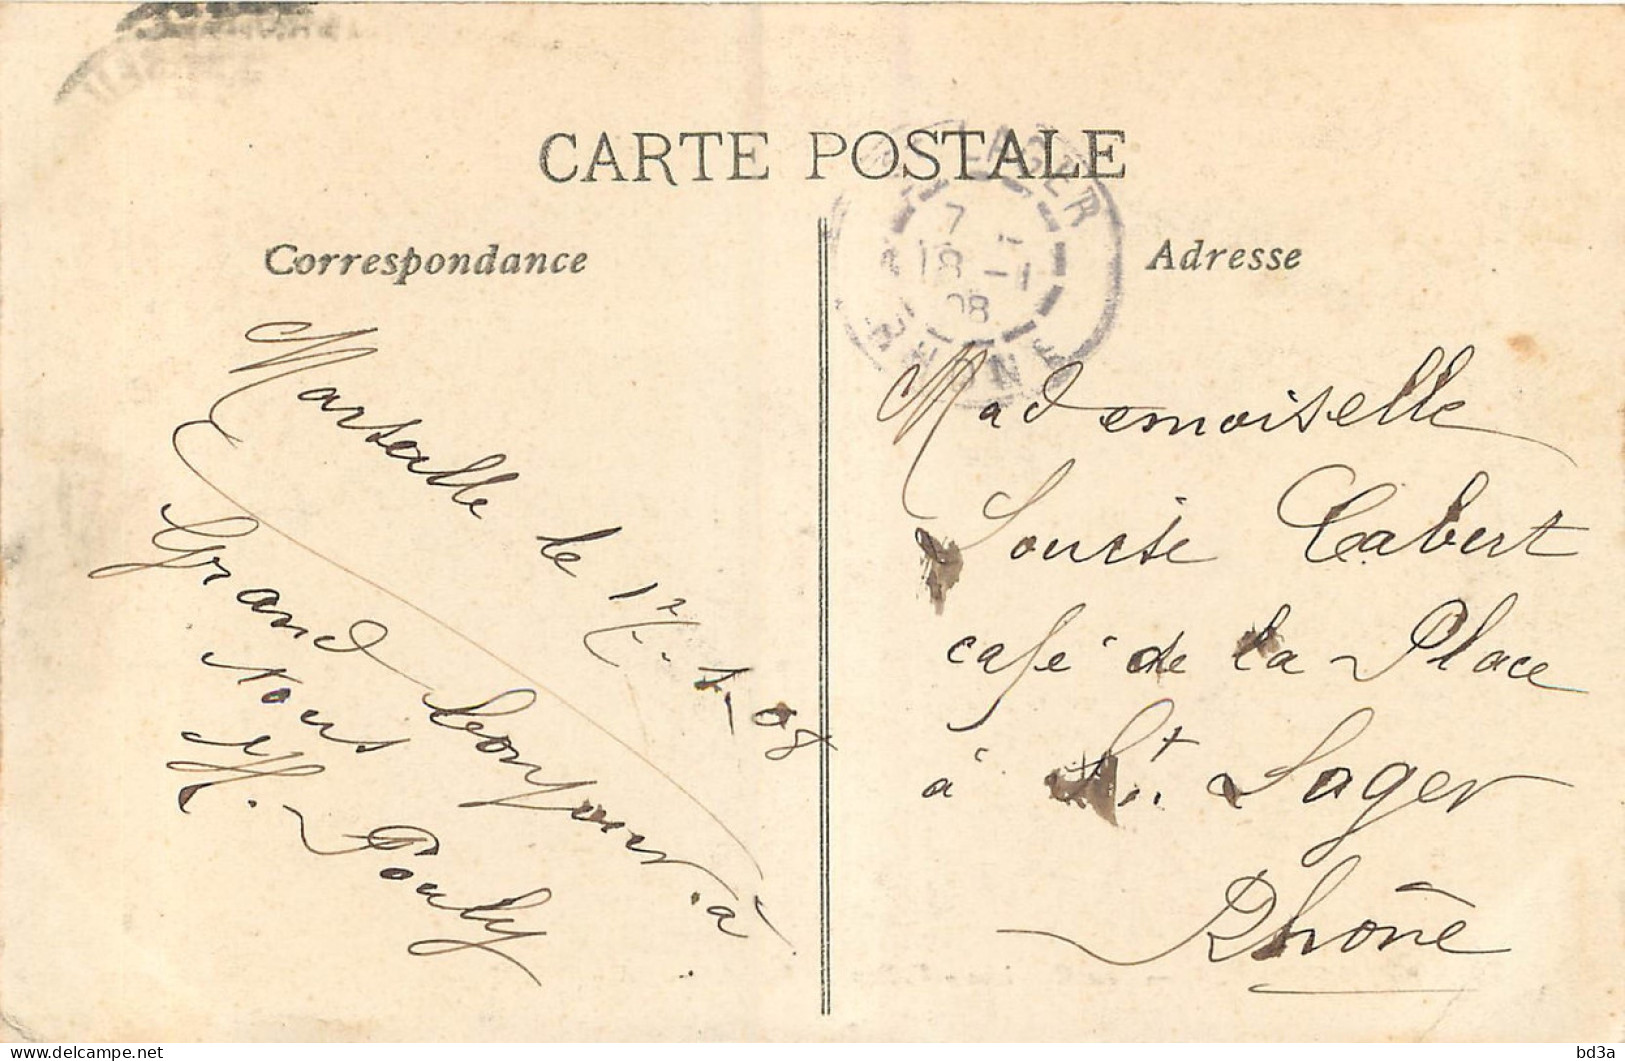 CARTE POSTALE
Correspondance
Adresse
LAGER
7
18 -1
08
RHONE
Marseille le 17-1-08
Grand bonjour à
Nous
H. Pouly
Mademoiselle
Louise Cabert
café de la Place
à St. Lager
Rhône
bd3a